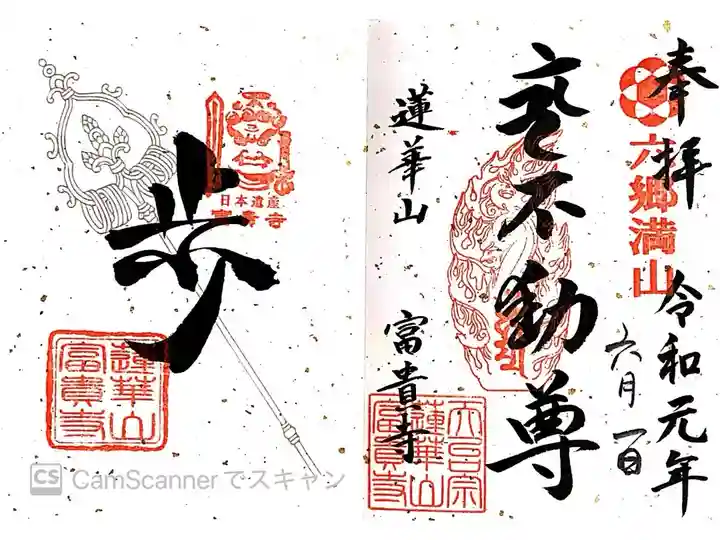 奉拝
六郷満山
令和元年
六月一日
不動尊
蓮華山
富貴寺
天台宗
蓮華山
富貴寺
歩
日本遺産
富貴寺
蓮華山
富貴寺
CS CamScannerでスキャン